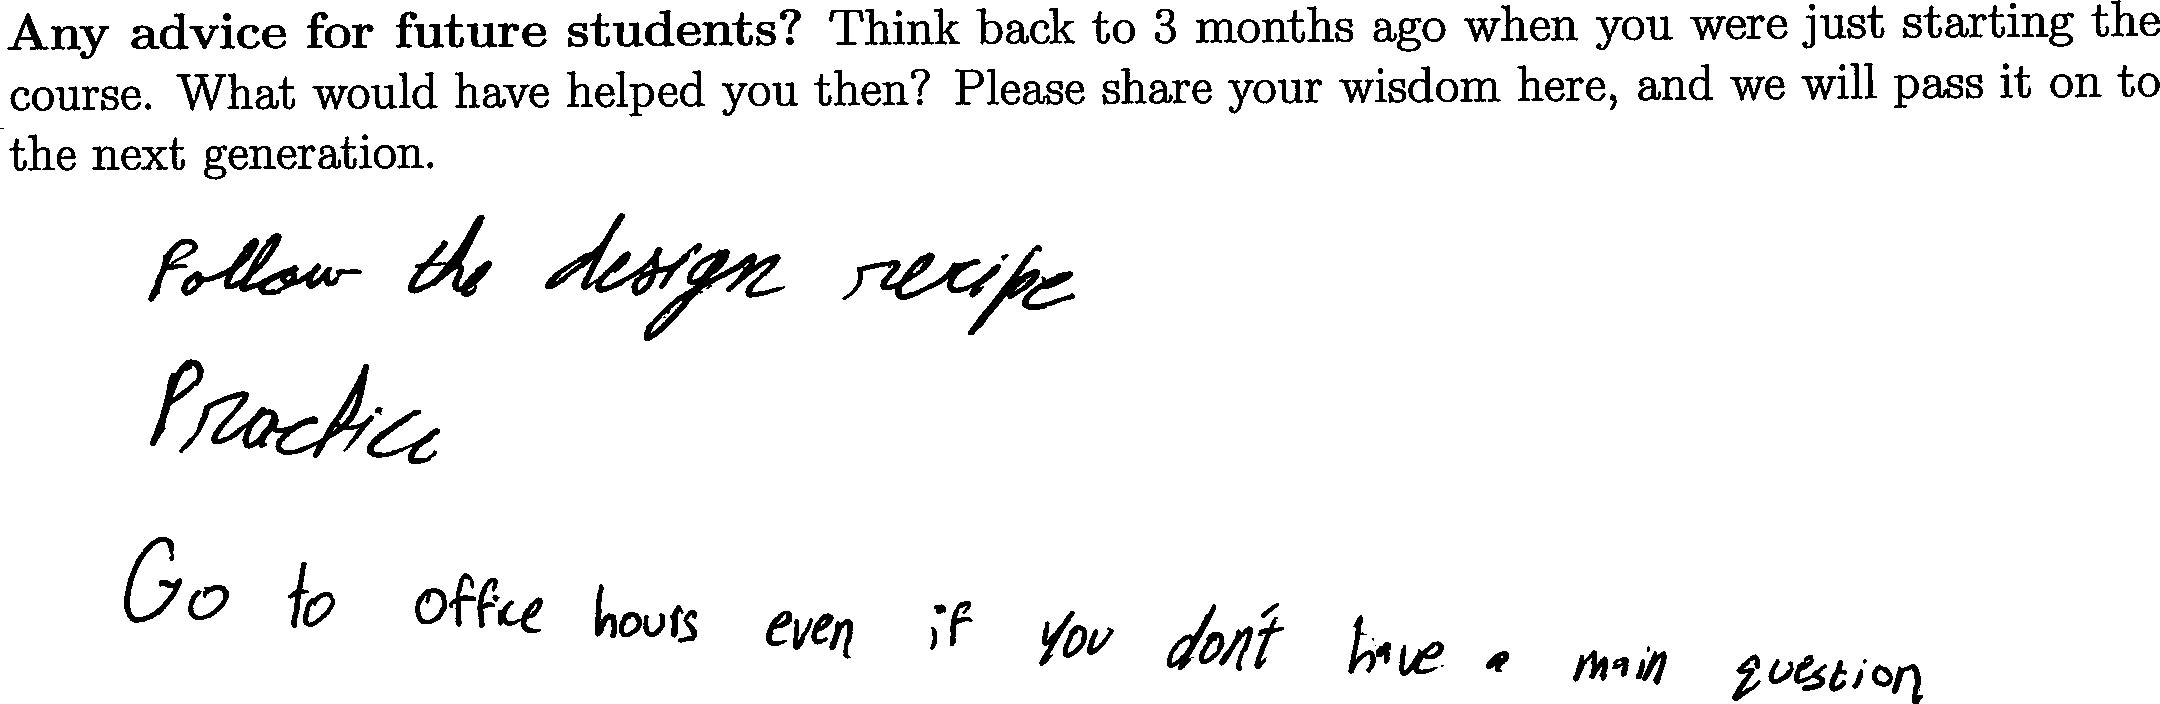 Any advice for future students? Think back to 3 months ago when you were just starting the
course. What would have helped you then? Please share your wisdom here, and we will pass it on to
the next generation.
Follow the design recipe
Practice
Go to office hours even if you don't have a main question